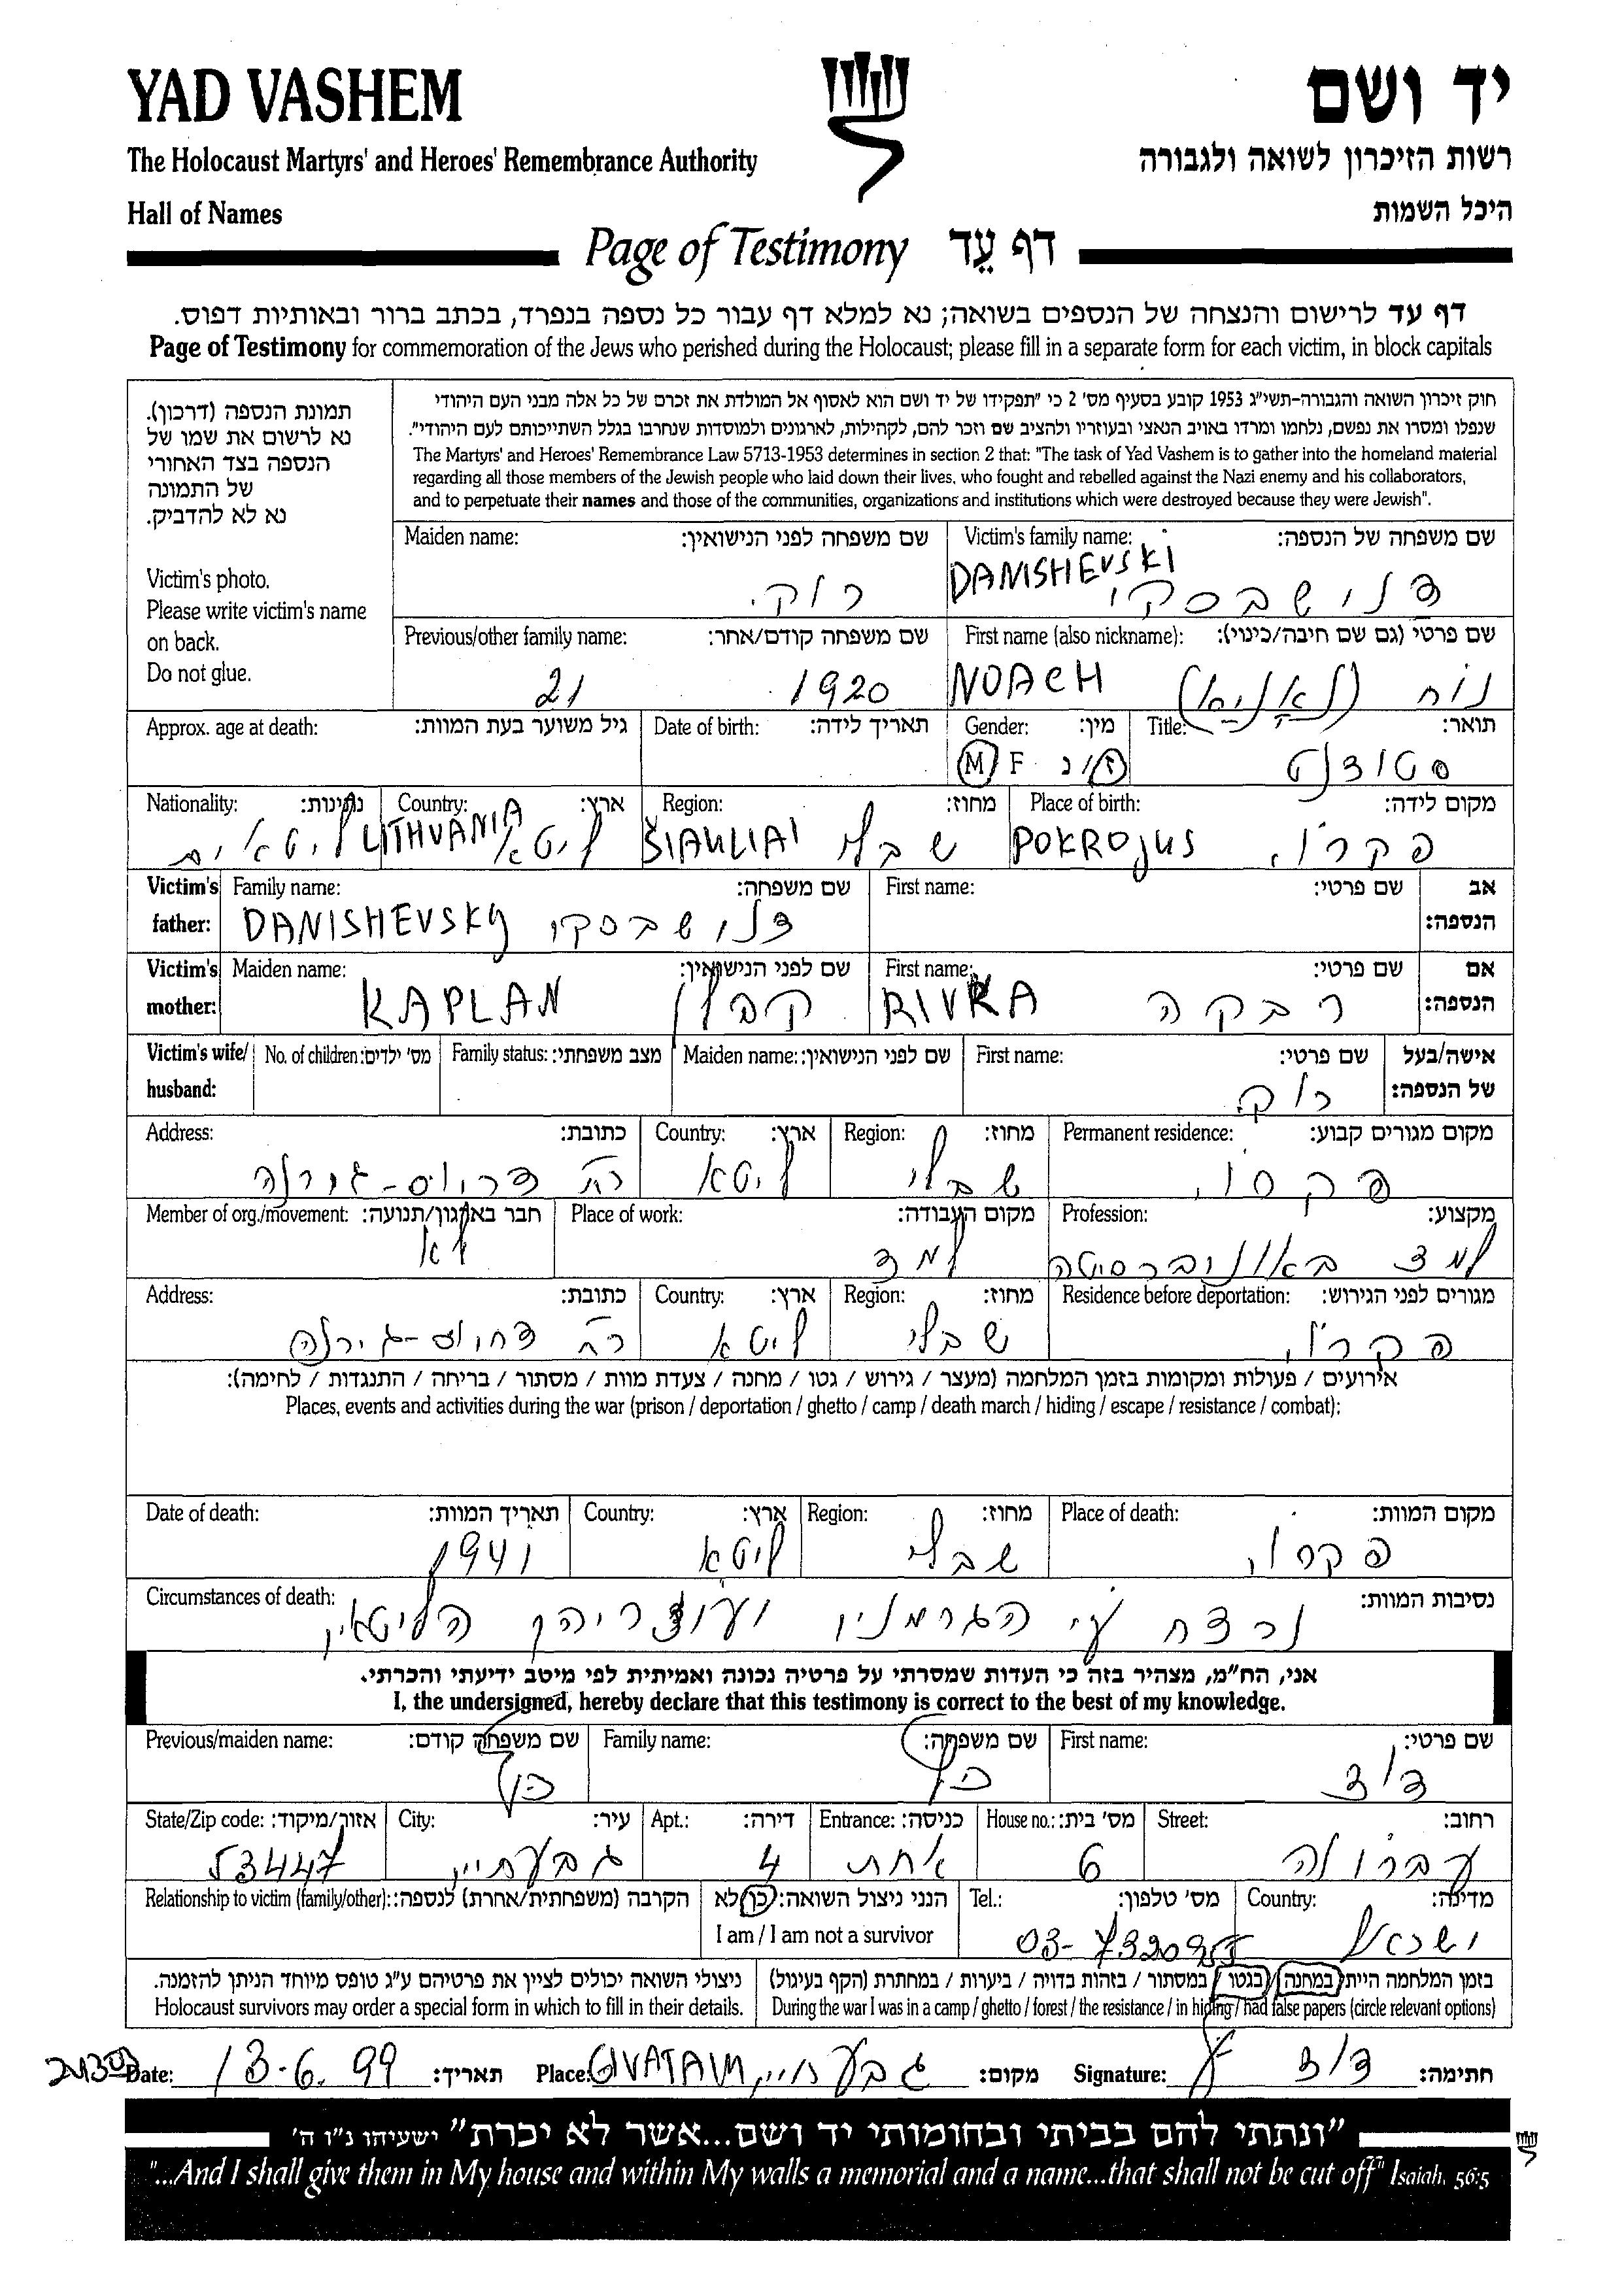 YAD VASHEM
יד ושם
The Holocaust Martyrs' and Heroes' Remembrance Authority
רשות הזיכרון לשואה ולגבורה
Hall of Names
היכל השמות
Page of Testimony דף עֵד
דף עד לרישום והנצחה של הנספים בשואה; נא למלא דף עבור כל נספה בנפרד, בכתב ברור ובאותיות דפוס.
Page of Testimony for commemoration of the Jews who perished during the Holocaust; please fill in a separate form for each victim, in block capitals
תמונת הנספה (דרכון).
נא לרשום את שמו של
הנספה בצד האחורי
של התמונה
נא לא להדביק.
Victim's photo.
Please write victim's name
on back.
Do not glue.
חוק זיכרון השואה והגבורה-תשי"ג 1953 קובע בסעיף מס' 2 כי "תפקידו של יד ושם הוא לאסוף אל המולדת את זכרם של כל אלה מבני העם היהודי
שנפלו ומסרו את נפשם, נלחמו ומרדו באויב הנאצי ובעוזריו ולהציב שם וזכר להם, לקהילות, לארגונים ולמוסדות שנחרבו בגלל השתייכותם לעם היהודי".
The Martyrs' and Heroes' Remembrance Law 5713-1953 determines in section 2 that: "The task of Yad Vashem is to gather into the homeland material
regarding all those members of the Jewish people who laid down their lives, who fought and rebelled against the Nazi enemy and his collaborators,
and to perpetuate their names and those of the communities, organizations and institutions which were destroyed because they were Jewish".
Maiden name: שם משפחה לפני הנישואין: Victim's family name: שם משפחה של הנספה:
רוק. DANISHEVSKI דנישבסקי
Previous/other family name: שם משפחה קודם/אחר: First name (also nickname): שם פרטי (גם שם חיבה/כינוי):
21 1920 NOACH נוח
Approx. age at death: גיל משוער בעת המוות: Date of birth: תאריך לידה: Gender: מין: Title: תואר:
M F ז/נ סטודנט
Nationality: נתינות: Country: ארץ: Region: מחוז: Place of birth: מקום לידה:
ליטאים LITHVANIA ליטא ŠIAULIAI שבלי POKROJUS פקרוי
Victim's father: Family name: שם משפחה: First name: שם פרטי: אב הנספה:
DANISHEVSKY דנישבסקי
Victim's mother: Maiden name: שם לפני הנישואין: First name: שם פרטי: אם הנספה:
KAPLAN קפלן RIVKA רבקה
Victim's wife/ husband: No. of children: מס' ילדים: Family status: מצב משפחתי: Maiden name: שם לפני הנישואין: First name: שם פרטי: אישה/בעל של הנספה:
רוק.
Address: כתובת: Country: ארץ: Region: מחוז: Permanent residence: מקום מגורים קבוע:
רח ליטא שבלי פקרוי
Member of org./movement: חבר בארגון/תנועה: Place of work: מקום העבודה: Profession: מקצוע:
לא למד למד באוניברסיטה
Address: כתובת: Country: ארץ: Region: מחוז: Residence before deportation: מגורים לפני הגירוש:
רח ליטא שבלי פקרוי
אירועים / פעולות ומקומות בזמן המלחמה (מעצר / גירוש / גטו / מחנה / צעדת מוות / מסתור / בריחה / התנגדות / לחימה):
Places, events and activities during the war (prison / deportation / ghetto / camp / death march / hiding / escape / resistance / combat):
Date of death: תאריך המוות: Country: ארץ: Region: מחוז: Place of death: מקום המוות:
1941 ליטא שבלי פקרוי
Circumstances of death: נסיבות המוות:
נרצח ע"י הגרמנין ועוזריהן הליטאין
אני, הח"מ, מצהיר בזה כי העדות שמסרתי על פרטיה נכונה ואמיתית לפי מיטב ידיעתי והכרתי.
I, the undersigned, hereby declare that this testimony is correct to the best of my knowledge.
Previous/maiden name: שם משפחה קודם: Family name: שם משפחה: First name: שם פרטי:
כץ כץ דוד
State/Zip code: אזור/מיקוד: City: עיר: Apt.: דירה: Entrance: כניסה: House no.: מס' בית: Street: רחוב:
53447 גבעתיים 4 אחת 6
Relationship to victim (family/other): הקרבה (משפחתית/אחרת) לנספה: הנני ניצול השואה: כן/לא Tel.: מס' טלפון: Country: מדינה:
I am / I am not a survivor ישראל
ניצולי השואה יכולים לציין את פרטיהם ע"ג טופס מיוחד הניתן להזמנה.
Holocaust survivors may order a special form in which to fill in their details.
בזמן המלחמה הייתי במחנה / בגטו / במסתור / בזהות בדויה / ביערות / במחתרת (הקף בעיגול)
During the war I was in a camp / ghetto / forest / the resistance / in hiding / had false papers (circle relevant options)
Date: 13-6.99 תאריך: Place: GIVATAIM גבעתיים מקום: Signature: דוד חתימה:
"ונתתי להם בביתי ובחומותי יד ושם...אשר לא יכרת" ישעיהו נ"ו ה'
"...And I shall give them in My house and within My walls a memorial and a name...that shall not be cut off" Isaiah, 56:5